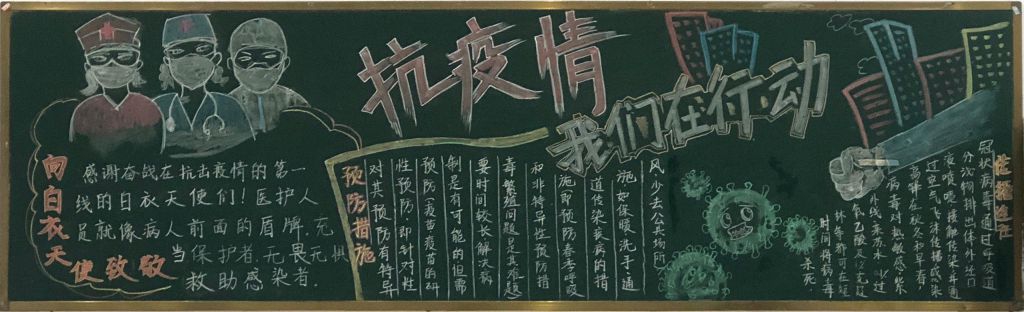 抗疫情
我们在行动
向白衣天使致敬
感谢奋战在抗击疫情的第一
线的白衣天使们！医护人
员就像病人前面的盾牌，充
当保护者，无畏无惧
救助感染者.
预防措施
对其预防有特异
性预防即针对性
预防(疫苗疫苗的研
制是有可能的但需
要时间较长解决病
毒繁殖问题是其难题
和非特异性预防措
施即预防春季呼吸
道传染疾病的措
施如保暖洗手通
风少去公共场所
传播途径
冠状病毒通过呼吸道
分泌物排出体外经口
液喷嚏接触传染并通
过空气飞沫传播感染
高峰在秋冬和早春
病毒对热敏感紫
外线来苏水 过
氧乙酸
体等都可在短
时间将病毒
杀死